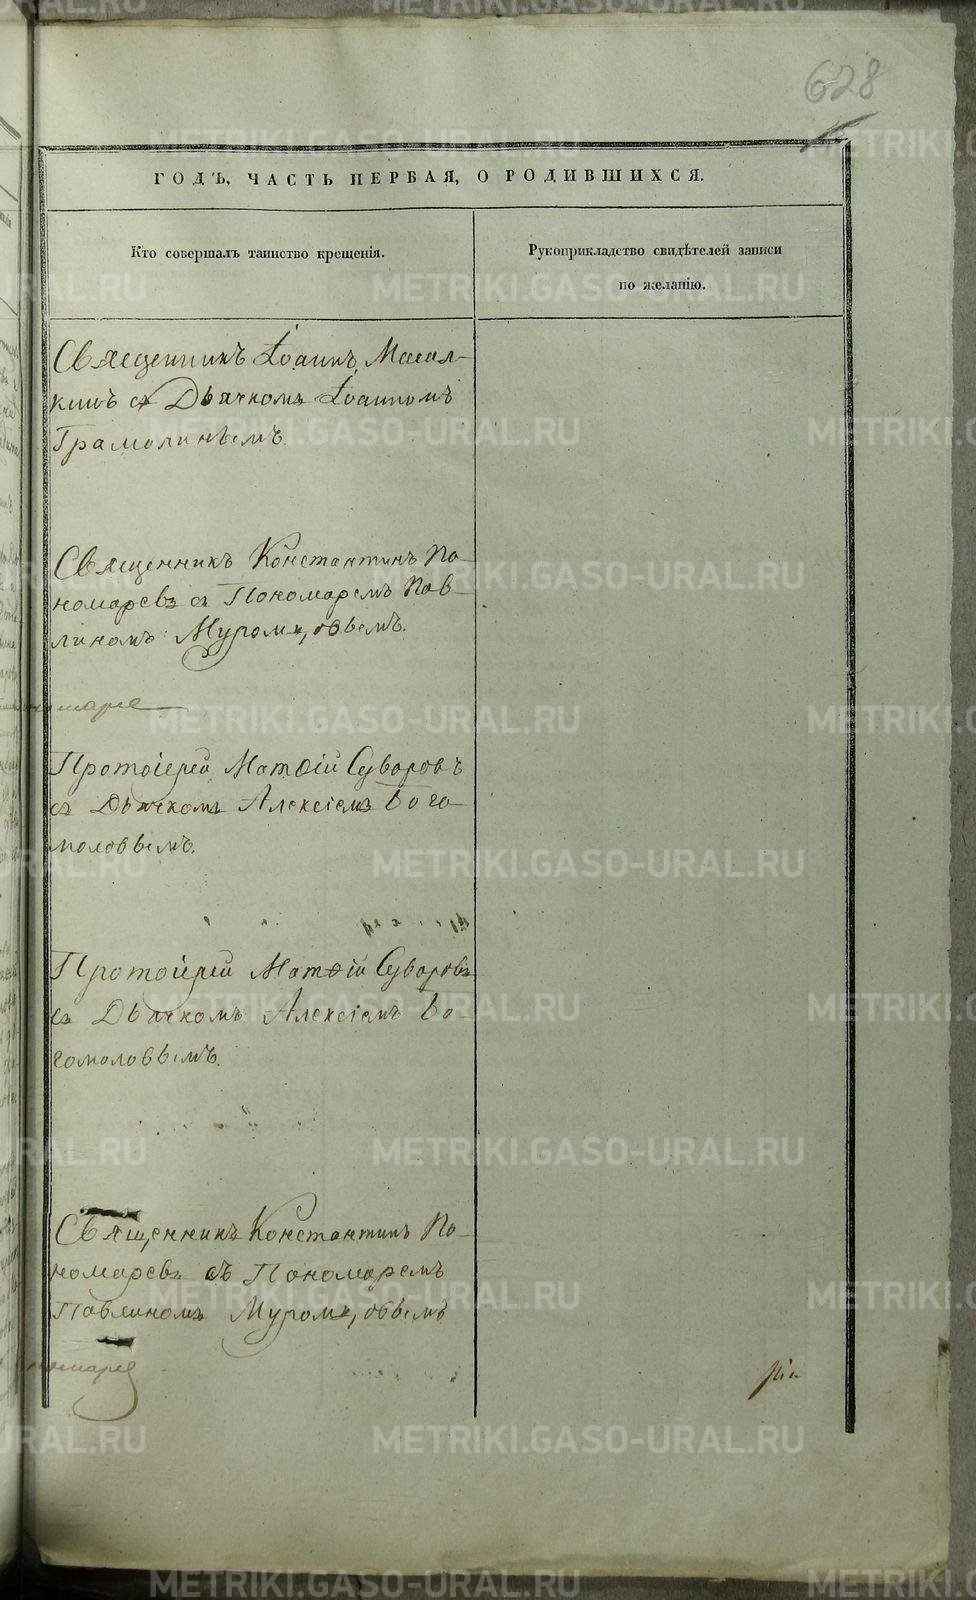 628
ГОДЪ, ЧАСТЬ ПЕРВАЯ, О РОДИВШИХСЯ.
Кто совершалъ таинство крещенія.
Рукоприкладство свидѣтелей записи
по желанію.
Священникъ Іоаннъ Масал-
кинъ съ Дьячкомъ Іоанномъ
Грамолинымъ.
Священникъ Константинъ По-
номаревъ съ Пономаремъ Пав-
линомъ Муромцовымъ.
Протоіерей Матѳій Суворовъ
съ Дьячкомъ Алексіемъ Бого-
моловымъ.
Протоіерей Матѳій Суворовъ
съ Дьячкомъ Алексіемъ Бо-
гомоловымъ.
Священникъ Константинъ По-
номаревъ съ Пономаремъ
Павлиномъ Муромцовымъ
METRIKI.GASO-URAL.RU